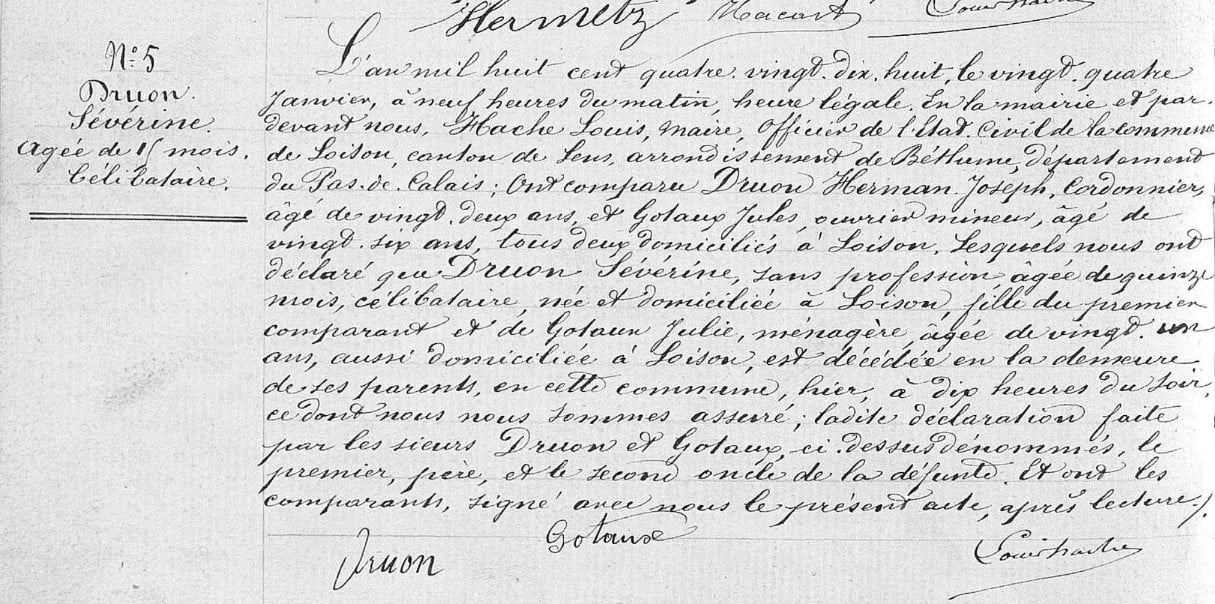 Hermetz Macart Louis Hache
N° 5
Druon
Sévérine.
Agée de 15 mois.
Célibataire.
L'an mil huit cent quatre. vingt. dix. huit, le vingt. quatre
Janvier, à neuf heures du matin, heure légale. En la mairie et par.
devant nous, Hache Louis, Maire, Officier de l'Etat. Civil de la commune
de Loison, canton de Lens, arrondissement de Béthune, département
du Pas. de. Calais; Ont comparu Druon Herman. Joseph, Cordonnier,
âgé de vingt. deux ans, et Gotaux Jules, ouvrier mineur, âgé de
vingt. six ans, tous deux domiciliés à Loison. Lesquels nous ont
déclaré que Druon Sévérine, sans profession, âgée de quinze
mois, célibataire, née et domiciliée à Loison, fille du premier
comparant et de Gotaux Julie, ménagère, âgée de vingt. un
ans, aussi domiciliée à Loison, est décédée en la demeure
de ses parents, en cette commune, hier, à dix heures du soir,
ce dont nous nous sommes assuré; ladite déclaration faite
par les sieurs Druon et Gotaux, ci. dessus dénommés, le
premier, père, et le second oncle de la défunte. Et ont les
comparants, signé avec nous le présent acte, après lecture./.
Druon Gotaux Louis Hache